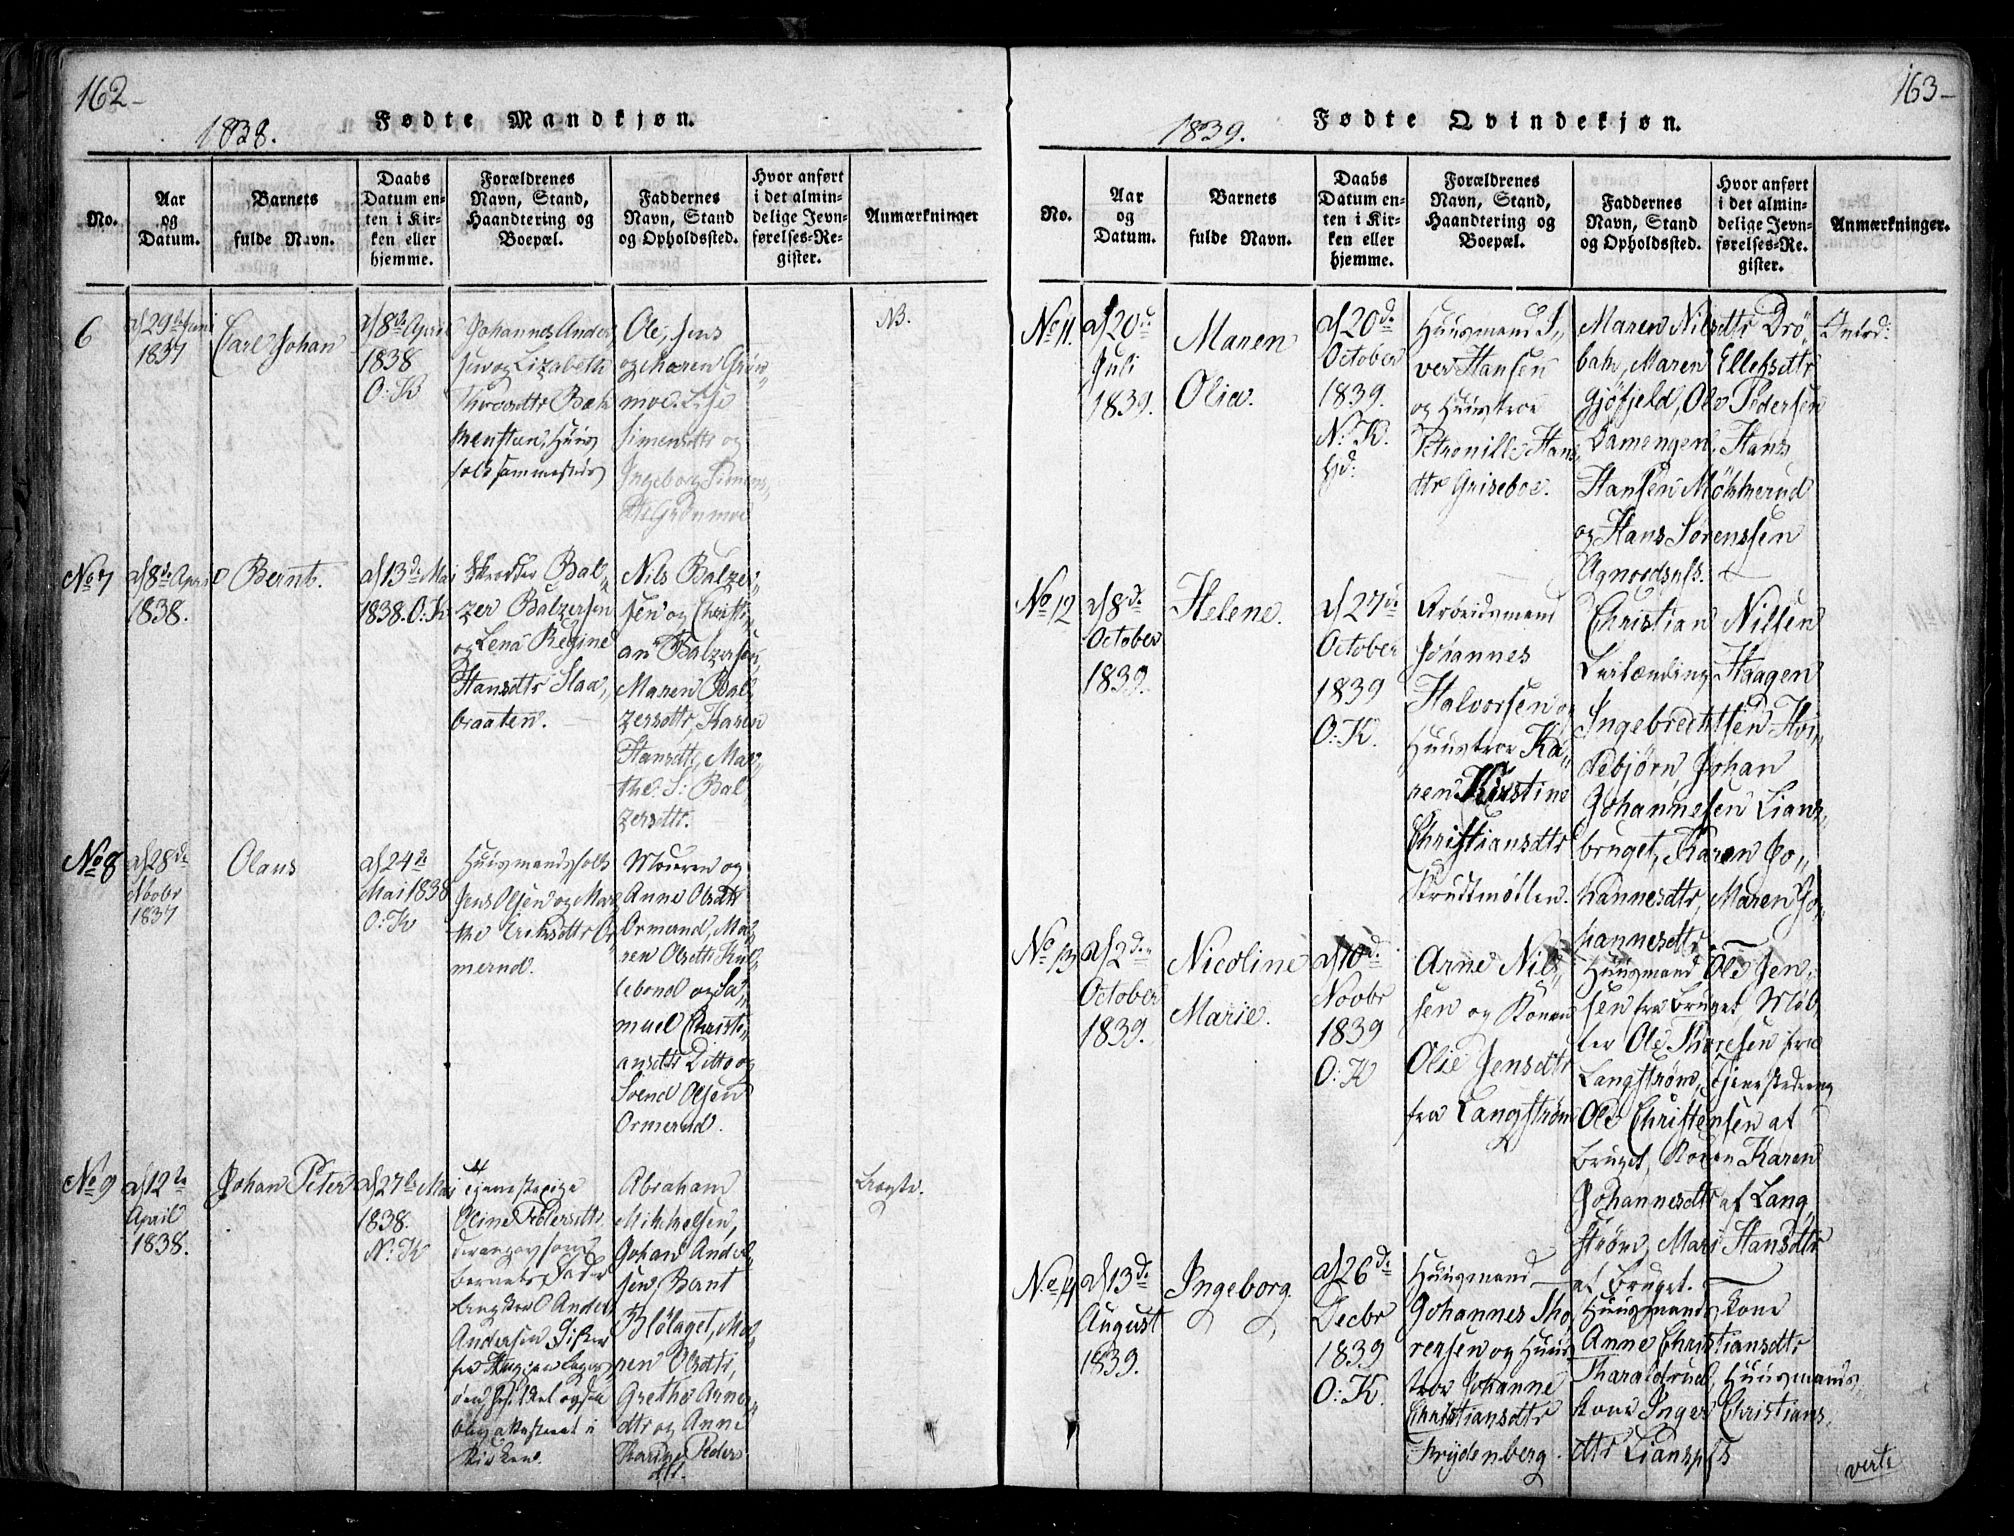 162-
Fødte Mandkjøn.
1838.
No.
Aar
og
Datum.
Barnets
fulde Navn.
Daabs
Datum en-
ten i Kir-
ken eller
hjemme.
Forældrenes
Navn, Stand,
Haandtering og
Boepæl.
Faddernes
Navn, Stand
og Opholdssted.
Hvor anført
i det almin-
delige Jevn-
førelses-Re-
gister.
Anmærkninger
6
1837
Carl Johan
1838
O: K
Johannes Ander
sen og Lizabeth
Ole, Jens
og Maren Grøn„
moe. Lise
Simensdtr og
Ingeborg Simens„
dtr Grønmoe
NB.
No 7
d/8de April
1838.
Bernt.
d/13de Mai
1838. O: K
Skredder Bal„
zer Balzersen
og Lena Regine
Hansdtr Slaa„
braaten.
Nils Balzer„
sen og Christi„
an Balzersen,
Maren Bal„
zersdtr, Karen
Hansdtr, Mar„
the. S: Bal„
zersdtr.
No 8
d/28de
Novbr
1837
Olaus
d/24de
Mai 1838
O: K
Huusmandsfolk
Jens Olsen og Mar„
the Eriksdtr Or„
merud.
Moderen og
Anne Olsdtr
Ormerud, Ma„
ren Olsdtr Kul„
lebond og Sa„
muel Christi„
ansdtr Ditto og
Svend Olsen
Ormerud.
No 9
d/12te
April
1838.
Johan Peter
d/27de Mai
1838.
N: K
Tjenestepige
Oline Pedersdtr.
der angav som
Barnets Fader
Andersen
Kirken.
Abraham
Mikkelsen,
Johan Ander„
sen, Bernt
Blølaget, Ma„
ren Olsdtr,
Grethe Arnes„
dtr og Anne
Peders
dtr.
163-
Fødte Qvindekjøn.
1839.
No.
Aar
og
Datum.
Barnets
fulde Navn.
Daabs
Datum en-
ten i Kir-
ken eller
hjemme.
Forældrenes
Navn, Stand,
Haandtering og
Boepæl.
Faddernes
Navn, Stand
og Opholdssted.
Hvor anført
i det almin-
delige Jevn-
førelses-Re-
gister.
Anmærkninger.
No 11.
d/20de
Juli
1839.
Maren
Olia.
d/20de
October
1839.
N: K.
hjd:
Huusmand I„
ver Hansen
og Huustroe
Petronille Hans„
dtr Griseboe.
Maren Nilsdtr Drø„
bak, Maren Ellefsdtr
Gjøfjeld, Ole Pedersen
Damengen, Hans
Hansen Møkkerud
og Hans Sørenssen
Introd:
No 12
d/8de
October
1839.
Helene.
d/27de
October
1839
O: K.
Arbeidsmand
Johannes
Halvorsen og
Huustroe Ka„
ren Kirstine
Christiansdtr
Krudtmøllen.
Christian Nilsen
Haagen
Ingebrechtsen Hvi„
debjørn, Johan
Johannesen Lians„
bruget, Karen Jo„
hannesdtr, Maren Jo„
hannesdtr
No 13
d/2de
October
1839.
Nicoline
Marie.
d/10d.
Novbr
1839
O: K
Arne Nil„
sen og Konen
Olie Jensdtr
fra Langstrøm
Huusmand Ole Jen„
sen fra Bruget, Møl„
ler Ole Thoresen fra
Langstrøm, Tjenestedreng
Ole Christensen af
Bruget, Konen Karen
Johannesdtr af Lang„
strøm, Mari Hansdtr
af Bruget.
No 14
d/13de
August
1839.
Ingeborg
d/26de
Decbr
1839
O: K.
Huusmand
Johannes Tho„
resen og Huus„
troe Johanne
Christiansdtr
Frydenberg.
Huusmands Kone
Anne Christiansdtr
Tharaldsrud, Huusmands„
kone Inger Christians„
dtr Lianspls
verte